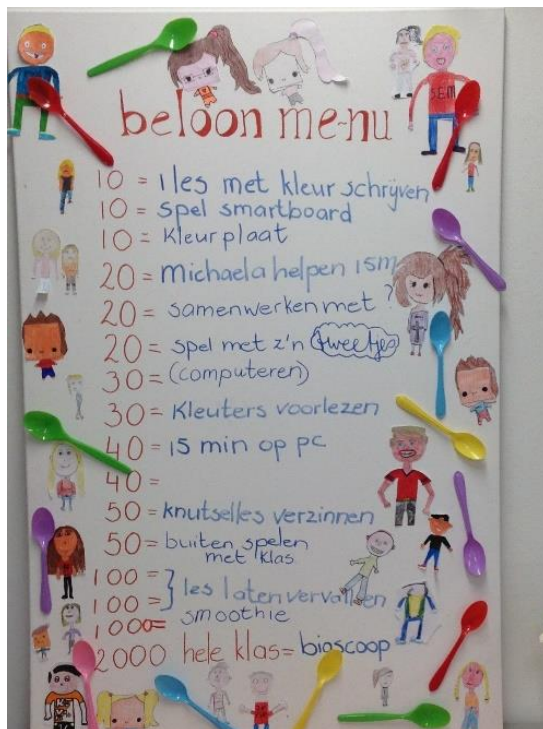 beloon me-nu
10 = 1 les met kleur schrijven
10 = spel smartboard
10 = kleurplaat
20 = Michaela helpen 15m
20 = samenwerken met ?
20 = spel met z'n tweetjes
30 = (computeren)
30 = Kleuters voorlezen
40 = 15 min op pc
40 =
50 = knutselles verzinnen
50 = buiten spelen
met klas
100 = } les laten vervallen
100 =
1000= smoothie
2000 hele klas = bioscoop
SEM